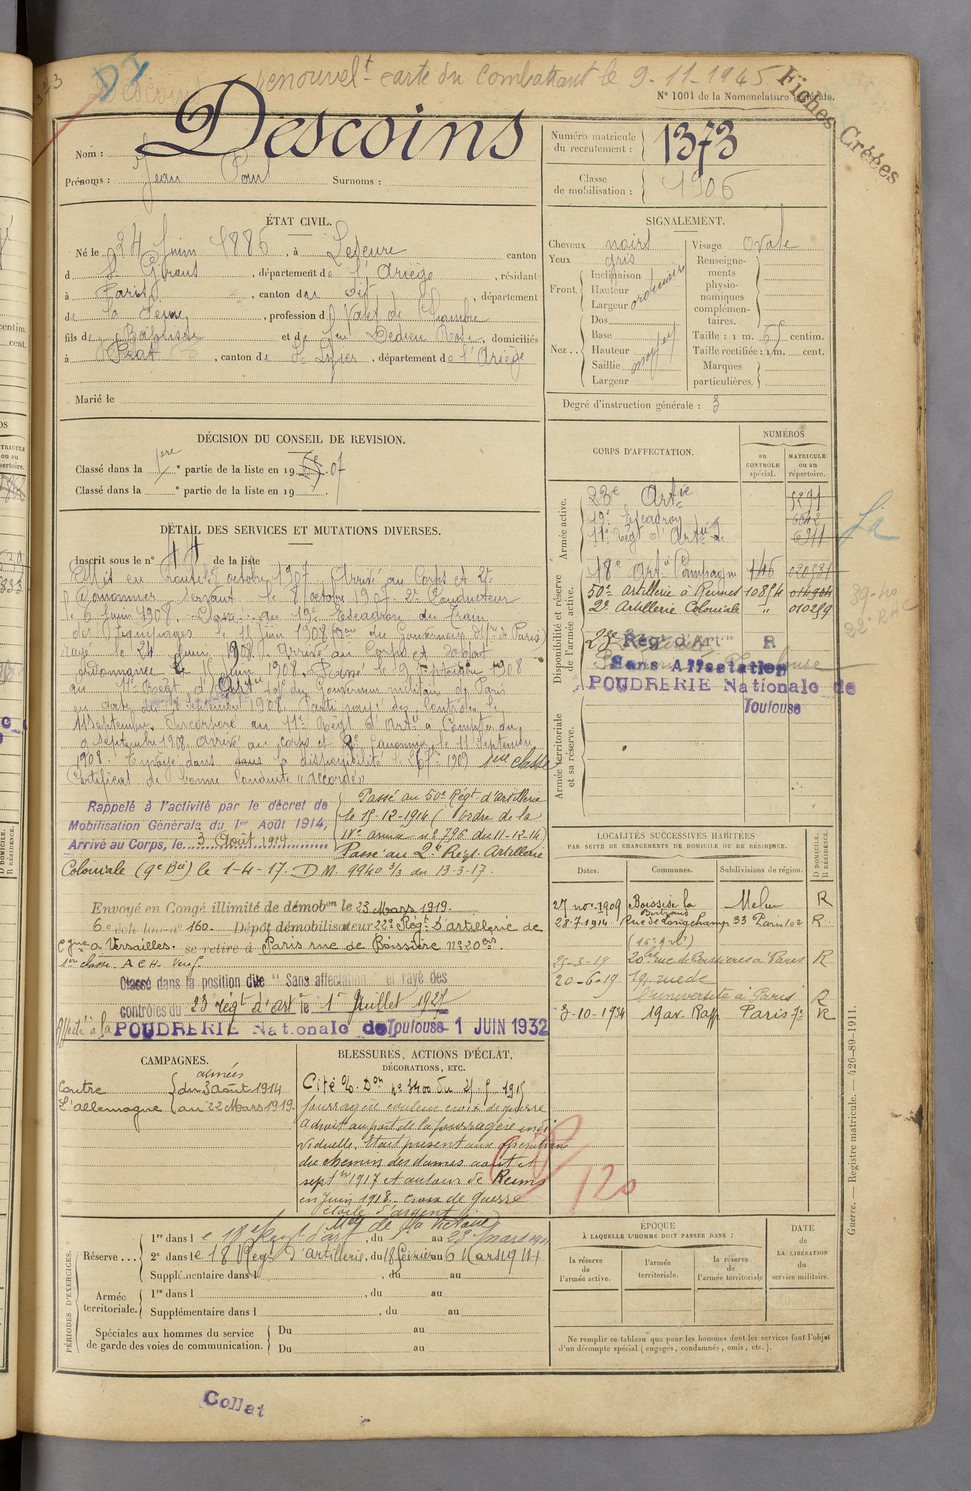 renouvelt carte du Combattant le 9-11-1945
Fiches Créées
N° 1001 de la Nomenclature
Nom : Descoins
Prénoms : Jean Paul Surnoms :
Numéro matricule du recrutement : 1373
Classe de mobilisation : 1906
ÉTAT CIVIL.
Né le 24 Juin 1886, à canton
d St Girons, département de l'Ariège, résidant
à Paris, canton du dit, département
de la Seine, profession d Valet de Chambre
fils de Baptiste et de feu Dedieu Rose, domiciliés
à Prat, canton de St Lizier, département de l'Ariège
Marié le
SIGNALEMENT.
Cheveux noirs
Yeux gris
Front. Inclinaison
Hauteur ordinaire
Largeur
Nez Dos
Base
Hauteur moyen
Saillie
Largeur
Visage ovale
Renseigne-
ments
physio-
nomiques
complémen-
taires.
Taille : 1 m. 65 centim.
Taille rectifiée : 1 m. cent.
Marques
particulières.
Degré d'instruction générale : 3
DÉCISION DU CONSEIL DE REVISION.
Classé dans la 1ère partie de la liste en 19 07
Classé dans la e partie de la liste en 19
DÉTAIL DES SERVICES ET MUTATIONS DIVERSES.
Inscrit sous le n° de la liste
Mis en route le octobre 1907. Arrivé au Corps et 2e
Canonnier Servant le 8 octobre 1907. 2e Conducteur
le 6 Juin 1908. Classé au 19e Escadron du Train
des Equipages le 11 Juin 1908
rayé le 24 Juin 1908. Arrivé au Corps et soldat
1908. Passé le 9 Septembre 1908
au 11e Régt d'Artie du Gouverneur militaire de Paris
en date du Septembre 1908. rayé des Contrôles le
11 Septembre. Incorporé au 11e Régt d'Artie à Compter du
9 Septembre 1908. arrivé au corps et 2e Canonnier le 11 Septembre
1908. Envoyé dans la disponibilité le 1909 1ère classe
Certificat de bonne Conduite "accordé"
Rappelé à l'activité par le décret de
Mobilisation Générale du 1er Août 1914,
Arrivé au Corps, le 3 Août 1914
Passé au 50e Régt d'artillerie
le 15-12-1914 (Ordre de la
IVe armée n° 2796 du 11-12-14)
Passé au 2e Régt Artillerie
Coloniale (9e Bie) le 1-4-17. D.M. 9940 du 13-3-17.
Envoyé en Congé illimité de démobon le 23 Mars 1919.
6e n° 160. Dépôt démobilisateur 22e Régt d'artillerie de
Cgne à Versailles. se retire à Paris rue de Boissière N° 20
1ère classe. A.C.H.
Classé dans la position dite "Sans affectation" et rayé des
contrôles du 23 régt d'artie le 1er Juillet 1927
Affecté à la POUDRERIE Nationale de Toulouse 1 JUIN 1932
CORPS D'AFFECTATION.
NUMÉROS
au CONTRÔLE spécial.
MATRICULE ou au répertoire.
Armée active.
23e Artie 5291
19e Escadron 6042
11e Régt d'Artie 6911
Disponibilité et réserve de l'armée active.
18e Artie Campagne 146
50e artillerie à Rennes 10854 014904
2e Artillerie Coloniale " 010259
23e Régt d'Artie R
Sans Affectation
POUDRERIE Nationale de
Toulouse
Armée territoriale et sa réserve.
LOCALITÉS SUCCESSIVES HABITÉES
PAR SUITE DE CHANGEMENTS DE DOMICILE OU DE RÉSIDENCE.
Dates. Communes. Subdivisions de région. D DOMICILE. R RÉSIDENCE.
27 nov. 1909 Boissise la Bertrand Melun R
28-7-1914 Rue de Longchamp 33 Paris R
25-3-19 20 rue de Boissière à Paris R
20-6-19 19 rue de
l'université à Paris R
3-10-1934 19 av. Rapp Paris 7e R
CAMPAGNES.
Contre
L'allemagne
armées
du 3 août 1914
au 22 Mars 1919.
BLESSURES, ACTIONS D'ÉCLAT,
DÉCORATIONS, ETC.
Cité
fourragère couleur croix de guerre
a droit au port de la fourragère indi
viduelle. Etait présent aux opérations
du chemin des dames août et
septbre 1917 et autour de Reims
en Juin 1918. croix de guerre
étoile d'argent
Mlle de la Victoire
120
PÉRIODES D'EXERCICES.
Réserve... 1re dans le 18e Régt d'art, du au 23 mars 1911
2e dans le 18 Régt D'artillerie, du 18 février au 6 Mars 1914
Supplémentaire dans l , du au
Armée territoriale. 1re dans l , du au
Supplémentaire dans l , du au
Spéciales aux hommes du service
de garde des voies de communication. Du au
Du au
ÉPOQUE
À LAQUELLE L'HOMME DOIT PASSER DANS :
la réserve de l'armée active.
l'armée territoriale.
la réserve de l'armée territoriale
DATE
de
LA LIBÉRATION
du
service militaire.
Ne remplir ce tableau que pour les hommes dont les services font l'objet
d'un décompte spécial (engagés, condamnés, omis, etc.).
Guerre. — Registre matricule. — 426-89-1911.
Collat